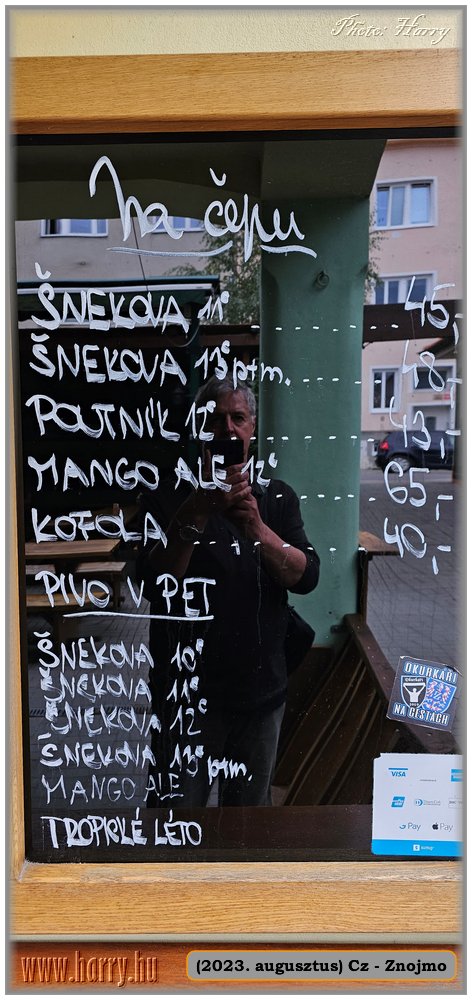 Photo: Harry
Na čepu
ŠNEKOVA 11° ........ 45,-
ŠNEKOVA 13° ptm. ..... 48,-
POUTNÍK 12° ........ 43,-
MANGO ALE 12° ...... 65,-
KOFOLA ........ 40,-
PIVO V PET
ŠNEKOVA 10°
ŠNEKOVA 11°
ŠNEKOVA 12°
ŠNEKOVA 13° ptm.
MANGO ALE
TROPICKÉ LÉTO
OKURKÁŘI
NA CESTÁCH
VISA
G Pay Pay
sumup
www.harry.hu
(2023. augusztus) Cz - Znojmo